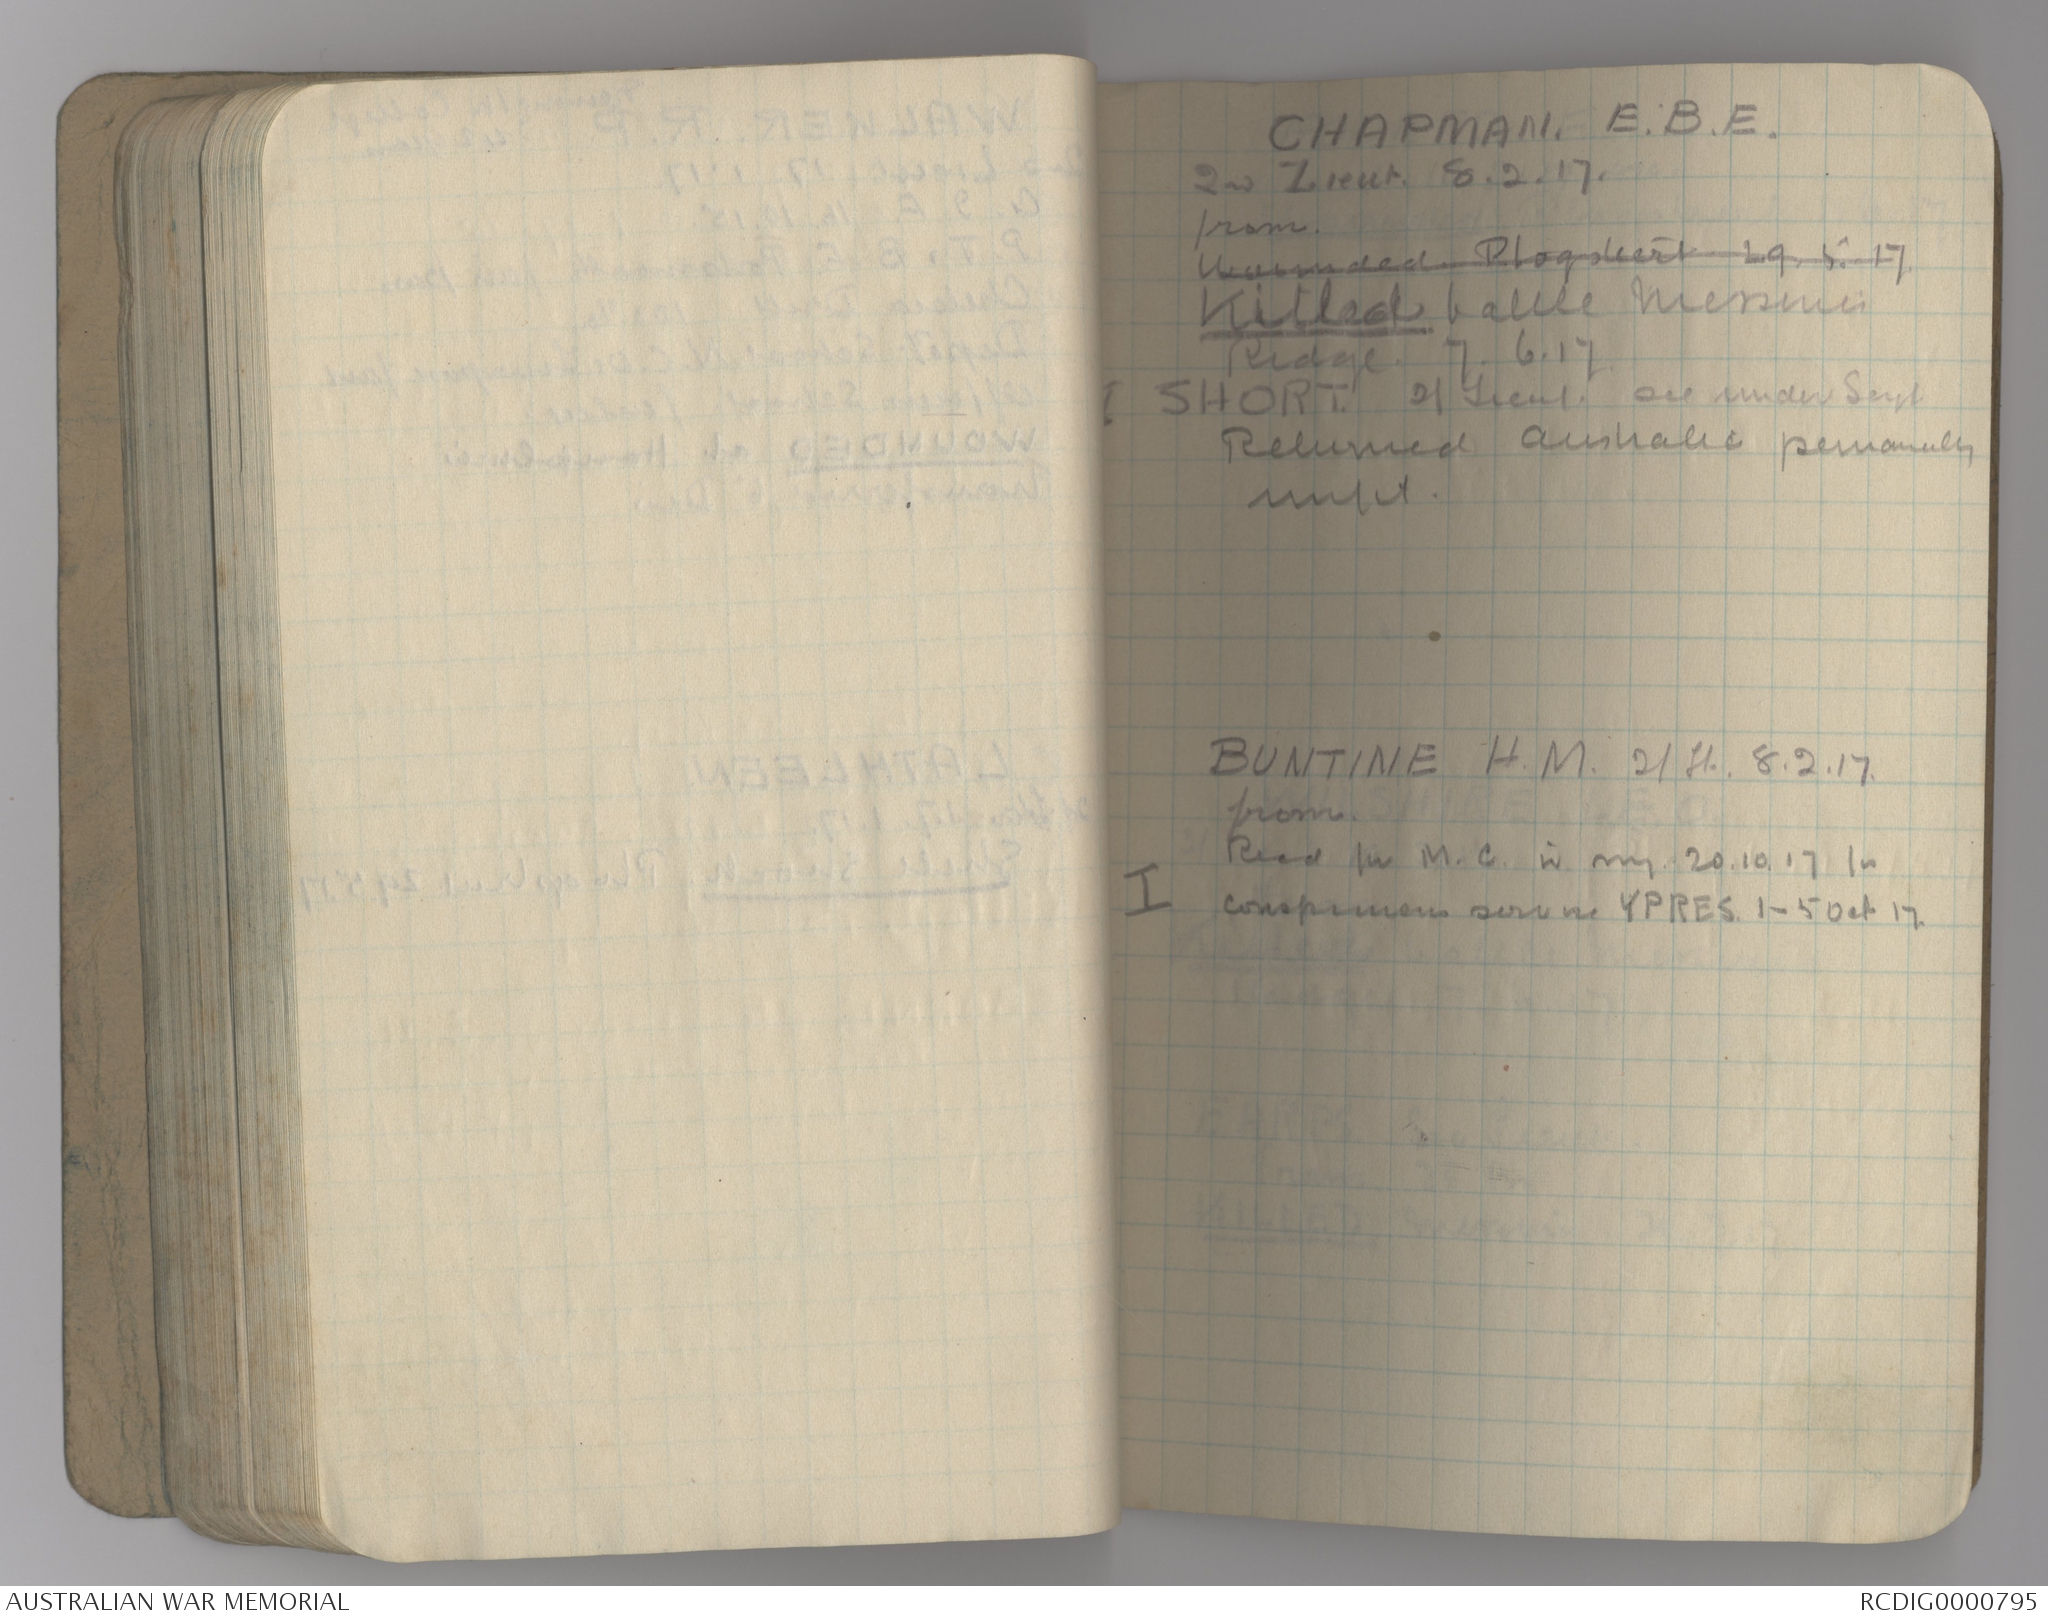 CHAPMAN. E.B.E.
2nd Lieut. 8.2.17.
from.
Wounded Plogstert 29.5.17
Killed battle Messines
Ridge. 7.6.17
I SHORT. 2/Lieut. see under Sergt
Returned Australia permanently
unfit.
BUNTINE H.M. 2/Lt. 8.2.17.
from.
Recd for M.C. in my 20.10.17 for
I conspicuous service YPRES. 1-5 Oct 17
AUSTRALIAN WAR MEMORIAL
RCDIG0000795